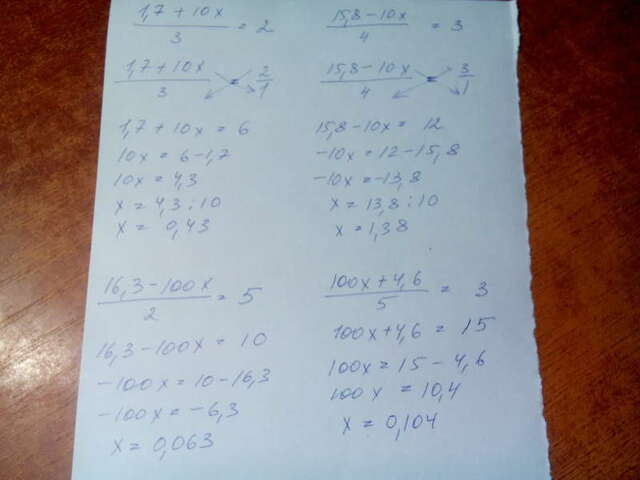 (1,7 + 10x)/3 = 2
(1,7 + 10x)/3 = 2/1
1,7 + 10x = 6
10x = 6 - 1,7
10x = 4,3
x = 4,3 : 10
x = 0,43
(15,8 - 10x)/4 = 3
(15,8 - 10x)/4 = 3/1
15,8 - 10x = 12
-10x = 12 - 15,8
-10x = -13,8
x = 13,8 : 10
x = 1,38
(16,3 - 100x)/2 = 5
16,3 - 100x = 10
-100x = 10 - 16,3
-100x = -6,3
x = 0,063
(100x + 4,6)/5 = 3
100x + 4,6 = 15
100x = 15 - 4,6
100x = 10,4
x = 0,104